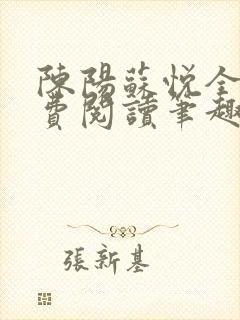 陳陽蘇悅全
費閱讀筆趣
張新基